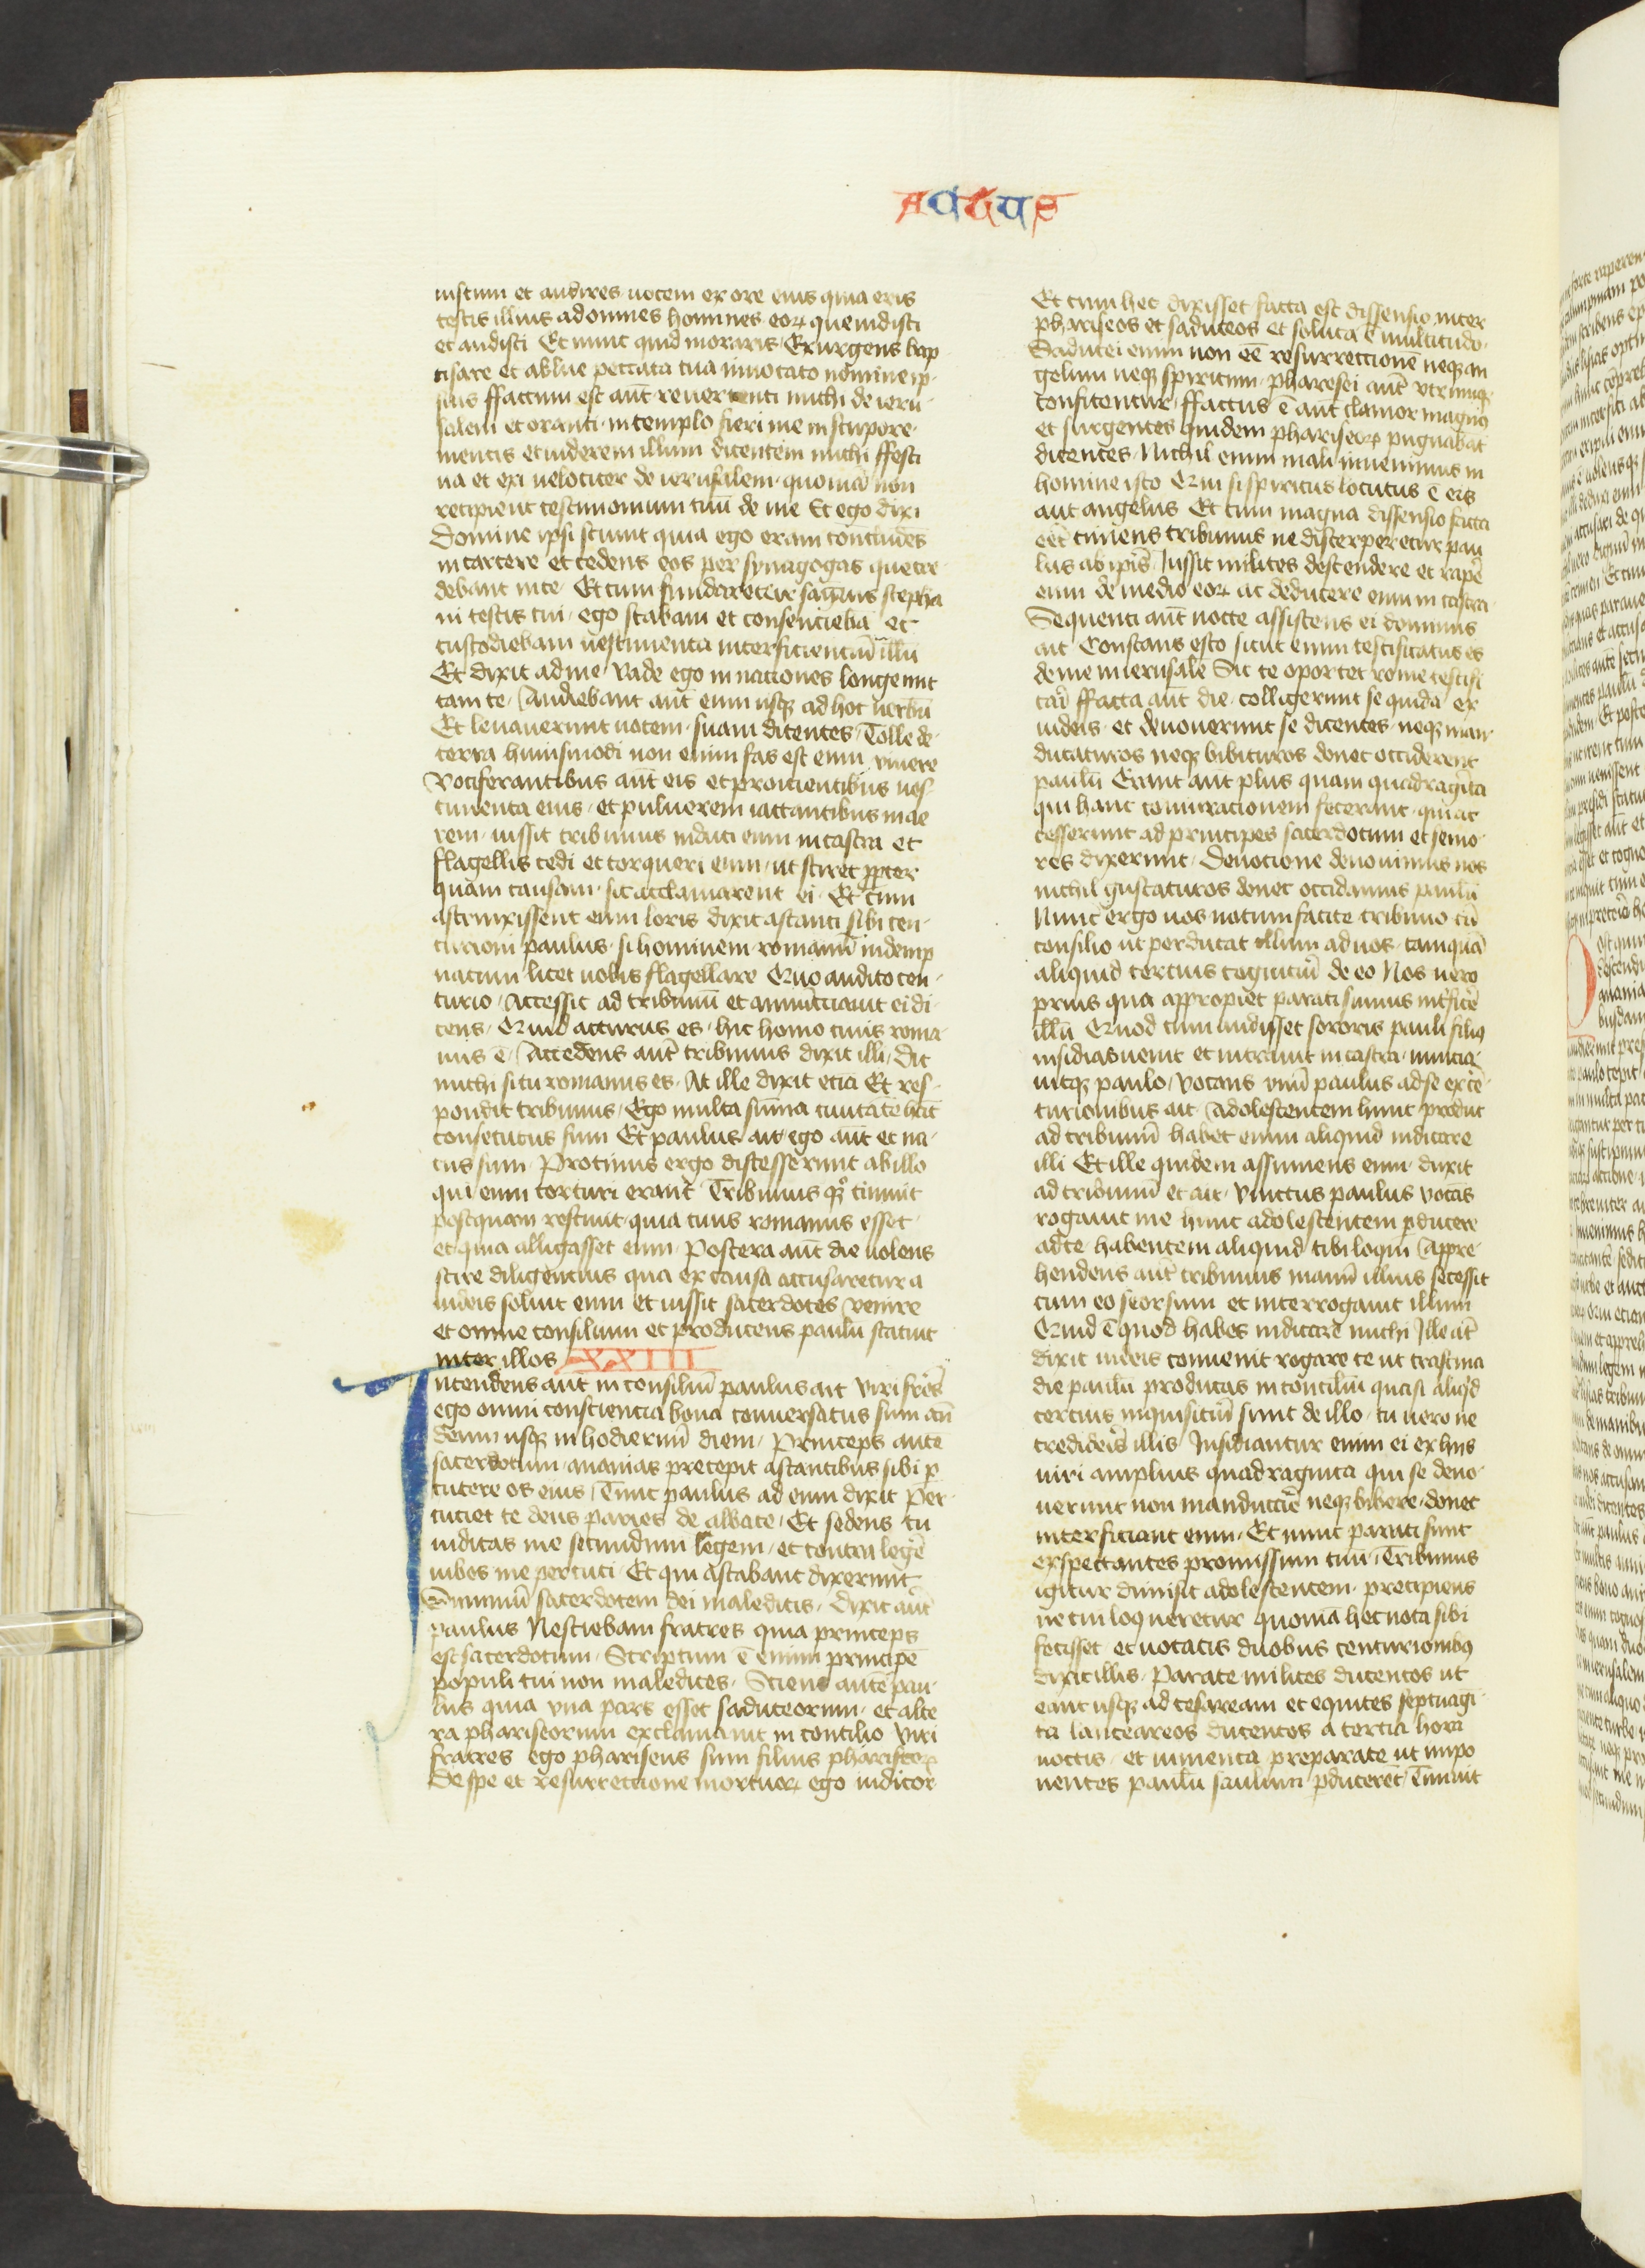 Actus
iustum et audires uocem ex ore eius quia eris
testis illius ad omnes homines eoꝝ que uidisti
et audisti Et nunc quid moraris Exurgens bap
tisare et ablue peccata tua inuocato nomine ip
sius ffactum est aūt reuertenti michi de ieru
salem et oranti in templo fieri me in stupore
mentis et uiderem illum dicentem michi ffesti
na et exi uelociter de ierusalem quoniā non
recipient testimonium tuū de me Et ego dixi
Domine ipsi sciunt quia ego eram concludēs
in carcere et cedens eos per synagogas que cre
debant in te Et cum funderetur sanguis stepha
ni testis tui ego stabam et consenciebā et
custodiebam uestimenta interficienciū illū
Et dixit ad me Vade ego in naciones longe mit
tam te Audiebant aūt eum usqꝫ ad hoc uerbū
Et leuauerunt uocem suam dicentes Tolle de
terra huiusmodi non enim fas est eum viuere
Vociferantibus aūt eis et proicientibus ues
timenta eius et puluerem iactantibus in ae
rem iussit tribunus induci eum in castra et
flagellis cedi et torqueri eum ut sciret ꝓpter
quam causam sic acclamarent ei Et cum
astrinxissent eum loris dixit astanti sibi cen
turioni paulus si hominem romanū indemp
natum licet uobis flagellare Quo audito cen
turio accessit ad tribunū et annunciauit ei di
cens Quid acturus es hic homo ciuis roma
nus ē Accedens aūt tribunus dixit illi dic
michi si tu romanus es At ille dixit eciā Et res
pondit tribunus Ego multa sūma ciuitatē hāc
consecutus sum Et paulus ait ego aūt et na
tus sum Protinus ergo discesserunt ab illo
qui eum torturi erant Tribunus qꝫ timuit
postquam resciuit quia ciuis romanus esset
et quia alligasset eum Postera aūt die uolens
scire diligencius qua ex causa accusaretur a
iudeis soluit eum et iussit sacerdotes venire
et omne consilium et producens paulū statuit
inter illos XXIII
Intendens aūt in consiliū paulus ait viri frēs
ego omni consciencia bona conuersatus sum an̄
deum usqꝫ in hodiernū diem Princeps autē
sacerdotum ananias precepit astantibus sibi ꝑ
cutere os eius Tunc paulus ad eum dixit Per
cuciet te deus paries de albate Et sedens tu
iudicas me secundum legem et contra legē
iubes me percuti Et qui astabant dixerunt
Summū sacerdotem dei maledicis Dixit aūt
paulus Nesciebam fratres quia princeps
est sacerdotum Scriptum ē enim principē
populi tui non maledices Sciens autē pau
lus quia vna pars esset saduceorum et alte
ra phariseorum exclamauit in concilio Viri
fratres ego phariseus sum filius phariseoꝝ
De spe et resurrectione mortuoꝝ ego iudicor
Et cum hec dixisset facta est dissensio inter
phariseos et saduceos et soluta ē multitudo
Saducei enim non eē resurrectionē neqꝫ an
gelum neqꝫ spiritum pharesei aūt vtrumqꝫ
confitentur ffactus ē aūt clamor magnꝰ
et surgentes quidem phariseoꝝ pugnabāt
dicentes Nichil enim mali inuenimus in
homine isto Qui si spiritus locutus ē eis
aut angelus Et cum magna dissensio facta
eēt timens tribunus ne discerperetur pau
lus ab ipīs Iussit milites descendere et rapē
eum de medio eoꝝ ac deducere eum in castra
Sequenti aūt nocte assistens ei dominus
ait Constans esto sicut enim testificatus es
de me in ierusalē Sic te oportet rome testifi
cari ffacta aūt die colligerunt se quidā ex
iudeis et deuouerunt se dicentes neqꝫ man
ducaturos neqꝫ bibituros donec occiderent
paulū Erant aut plus quam quadragīta
qui hanc coniuracionem fecerant qui ac
cesserunt ad principes sacerdotum et senio
res dixerunt Deuocione deuouimus nos
nichil gustaturos donec occidamus paulū
Nunc ergo uos notum facite tribuno cū
consilio ut perducat illum ad uos tamquā
aliquid cercius cogniturū de eo Nos uero
prius qua appropiet parati sumus int̄ficē
illū Quod cum audisset sororis pauli filiꝰ
insidias uenit et intrauit in castra nuncia
uitqꝫ paulo Vocans vnū paulus ad se ex cē
turionibus ait Adolescentem hunc produc
ad tribunū habet enim aliquid indicare
illi Et ille quidem assumens eum duxit
ad tribunū et ait vinctus paulus vocās
rogauit me hunc adolescentem ꝑducere
ad te habentem aliquid tibi loqui Appre
hendens aūt tribunus manū illius secessit
cum eo seorsum et interrogauit illum
Quid ē quod habes indicare michi Ille āt
dixit iudeis conuenit rogare te ut crastina
die paulū producas in conciliū quasi aliqd
cercius inquisiturū sunt de illo tu uero ne
credideris illis Insidiantur enim ei ex hiis
uiri amplius quadraginta qui se deuo
uerunt non manducāre neqꝫ bibere donec
interficiant eum Et nunc parati sunt
exspectantes promissum tuū Tribunus
igitur dimisit adolescentem precipiens
ne cui loqueretur quoniā hec nota sibi
fecisset et uocatis duobus centurionibꝰ
dixit illis Parate milites ducentos ut
eant usqꝫ ad cesaream et equites septuagī
ta lanceareos ducentos a tercia hora
noctis et iumenta preparate ut impo
nentes paulū saluum ꝑducerēt Timuit